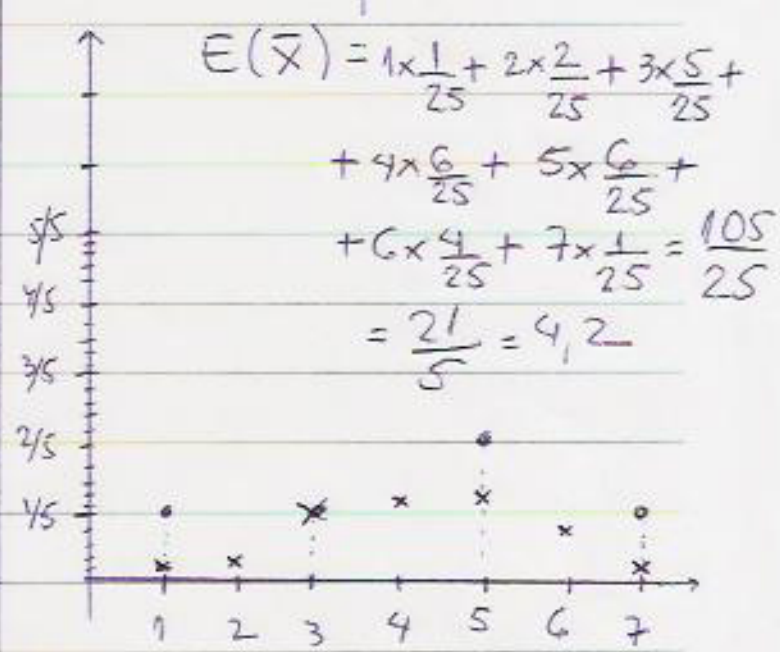 E(X̄) = 1×1/25 + 2×2/25 + 3×5/25 +
+ 4×6/25 + 5×6/25 +
+ 6×4/25 + 7×1/25 = 105/25
= 21/5 = 4,2
5/5
4/5
3/5
2/5
1/5
1 2 3 4 5 6 7